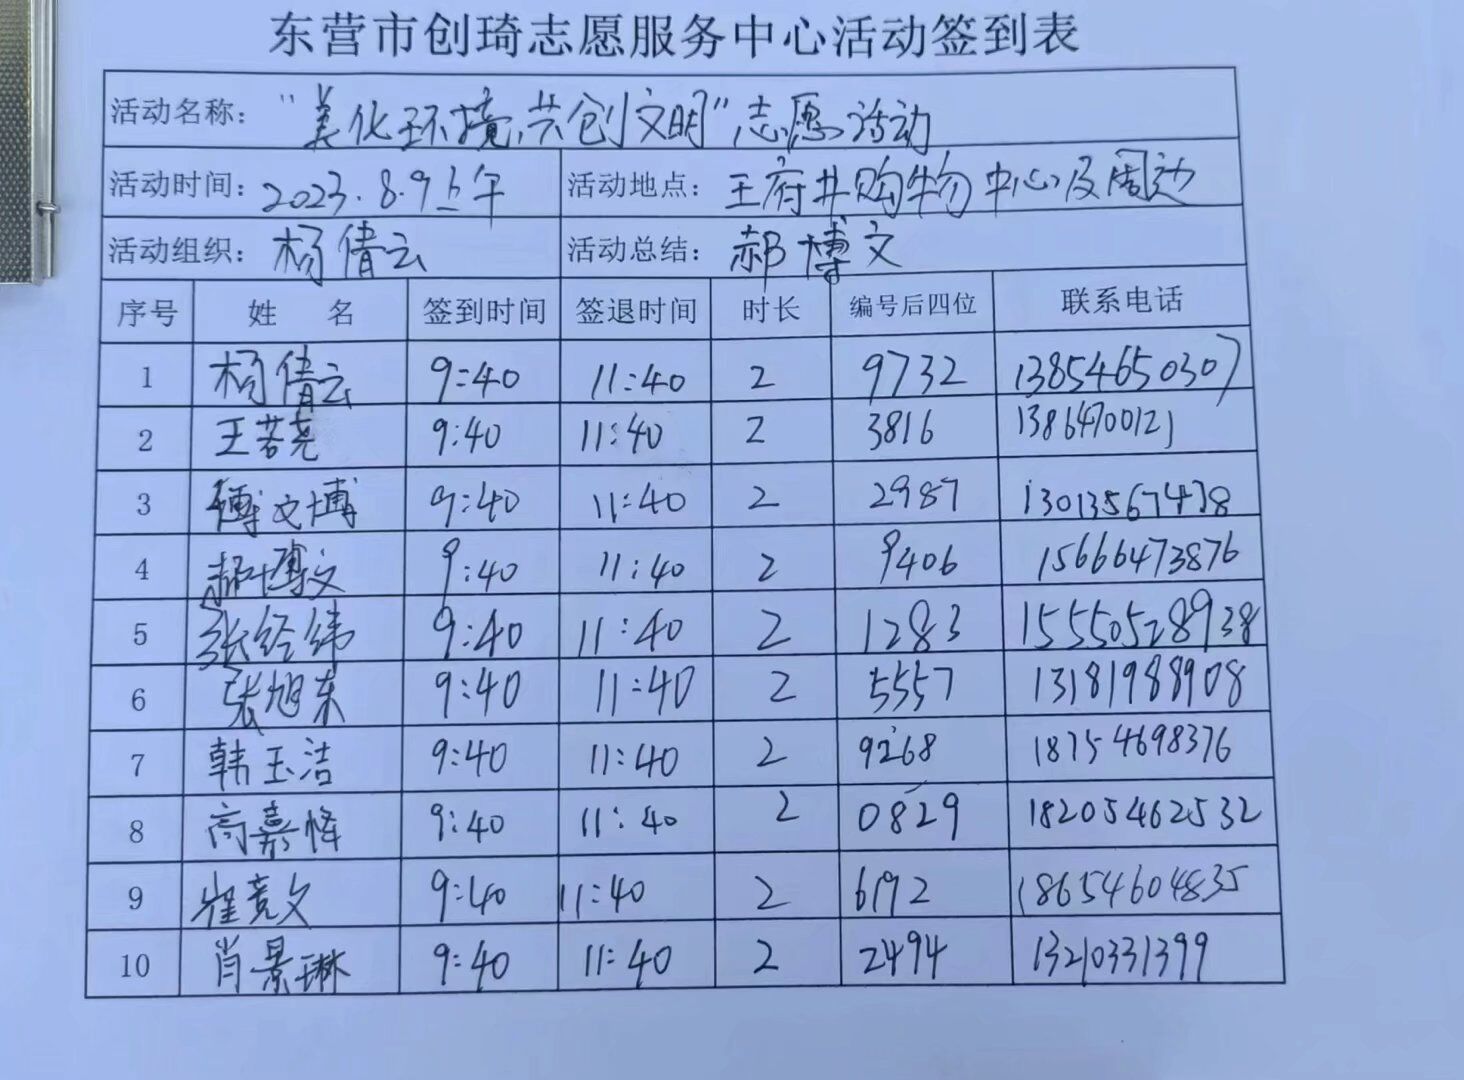 东营市创琦志愿服务中心活动签到表
活动名称: "美化环境,共创文明"志愿活动
活动时间: 2023.8.9上午 活动地点: 王府井购物中心及周边
活动组织: 杨倩云 活动总结: 郝博文
序号 姓 名 签到时间 签退时间 时长 编号后四位 联系电话
1 杨倩云 9:40 11:40 2 9732 13854650307
2 王若尧 9:40 11:40 2 3816 13864700121
3 傅文博 9:40 11:40 2 2987 13013567478
4 郝博文 9:40 11:40 2 9406 15666473876
5 张经纬 9:40 11:40 2 1283 15550528938
6 张旭东 9:40 11:40 2 5557 13181988908
7 韩玉洁 9:40 11:40 2 9268 18754698376
8 高嘉 9:40 11:40 2 0829 18205462532
9 崔竞文 9:40 11:40 2 6192 18654604835
10 肖景琳 9:40 11:40 2 2494 13210331399